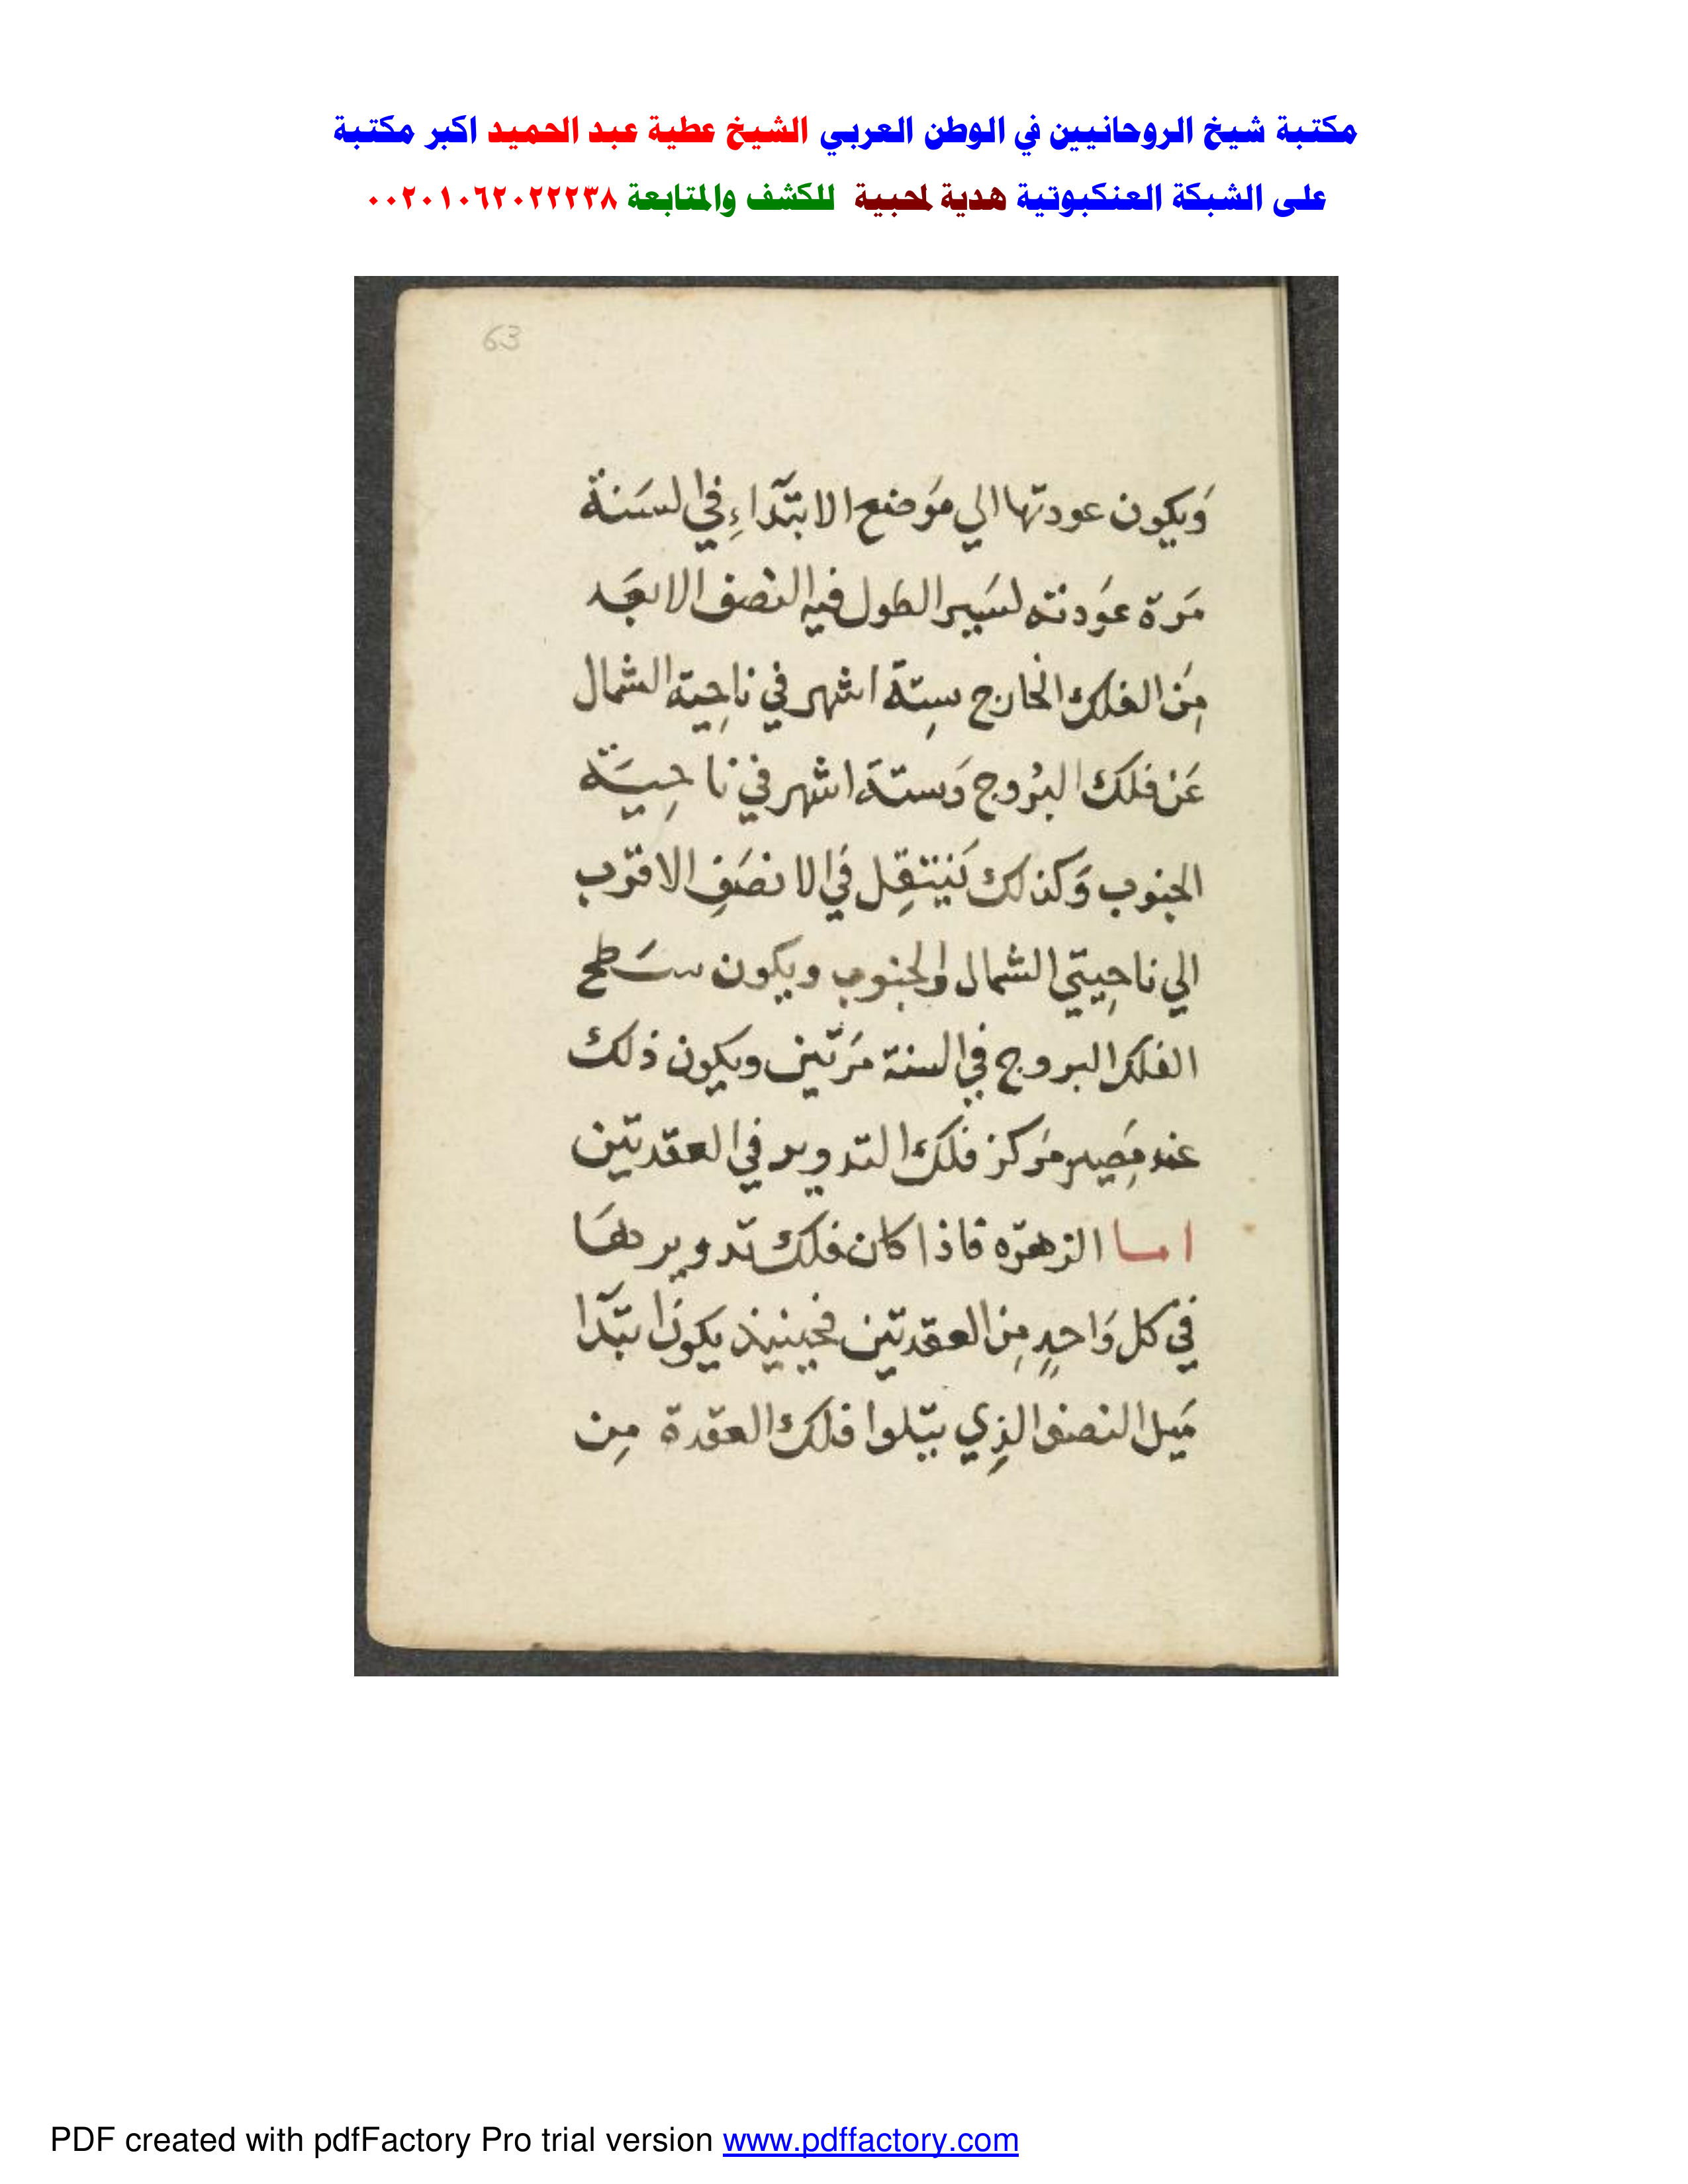 مكتبة شيخ الروحانيين في الوطن العربي الشيخ عطية عبد الحميد اكبر مكتبة
على الشبكة العنكبوتية هدية لمحبية للكشف والمتابعة ٠٠٢٠١٠٦٢٠٢٢٢٣٨
63
وَيكون عودتها الي مَوضع الابتدَاءِ في السَنة
مَرة عَودته لسَير الطول فيه النصف الابعَد
مِنَ الفلك الخارج سِتة اشهر في ناحِية الشمال
عَن فلك البرُوج وَستة اشهر في ناحِيَة
الجنوب وَكذلك يَنتقِل في الانصَفِ الاقرَب
الي ناحِيتي الشمال والجنوب ويكون سَطح
الفلك البروج في السنة مَرتين ويكون ذلك
عند مَصِير مَركز فلك التدوير في العقدتين
اما الزهرَه فاذا كان فلك تدويرهَا
في كل وَاحدٍ مِن العقدتين فحينيذ يكون ابتدَا
مَيل النصف الذِي يتلوا فلك العقدة مِن
PDF created with pdfFactory Pro trial version www.pdffactory.com